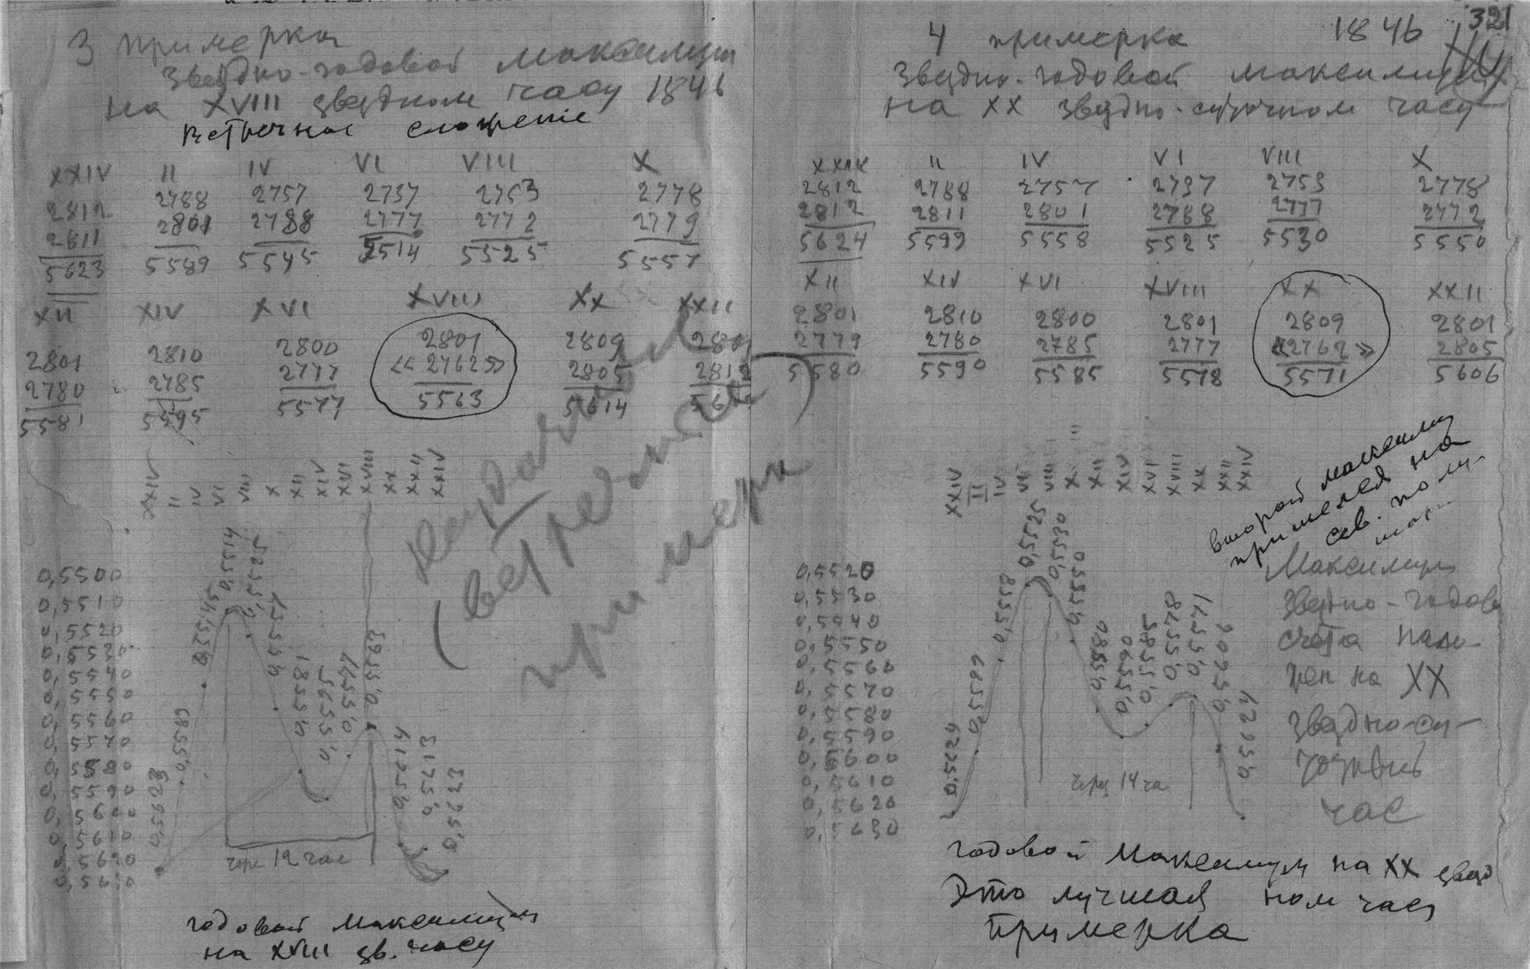 3 примерка
Звездно-годовой максимум
на XVIII звездном часу 1846
Встречное сложение
XXIV II IV VI VIII X
2812 2788 2757 2737 2753 2778
2811 2801 2788 2777 2772 2779
5623 5589 5545 5514 5525 5557
XII XIV XVI XVIII XX XXII
2801 2810 2800 2801 2809 2801
2780 2785 2777 «2762» 2805 2812
5581 5595 5577 5563 5614
Неудачная
(вет
примерка
XXIV II IV VI VIII X XII XIV XVI XVIII XX XXII XXIV
0,5500
0,5510
0,5520
0,5530
0,5540
0,5550
0,5560
0,5570
0,5580
0,5590
0,5600
0,5610
0,5620
0,5630
0,5623
0,5589
0,5545
0,5514
0,5525
0,5557
0,5581
0,5595
0,5577
0,5563
0,5614
0,5613
0,5623
через 12 час
годовой максимум
на XVIII зв. часу
321
4 примерка 1846
Звездно-годовой максимум
на XX звездно-суточном часу
XXIV II IV VI VIII X
2812 2788 2757 2737 2753 2778
2812 2811 2801 2788 2777 2772
5624 5599 5558 5525 5530 5550
XII XIV XVI XVIII XX XXII
2801 2810 2800 2801 2809 2801
2779 2780 2785 2777 «2762» 2805
5580 5590 5585 5578 5571 5606
XXIV II IV VI VIII X XII XIV XVI XVIII XX XXII XXIV
0,5520
0,5530
0,5540
0,5550
0,5560
0,5570
0,5580
0,5590
0,5600
0,5610
0,5620
0,5630
0,5624
0,5599
0,5558
0,5525
0,5530
0,5550
0,5580
0,5590
0,5585
0,5578
0,5571
0,5606
0,5624
через 14 час
второй максимум
пришелся на
сев. полу-
Максимум
звездно-годов
счета поло-
жен на XX
звездно-су-
точный
час
годовой максимум на XX звезд
ном часу
Это лучшая
примерка